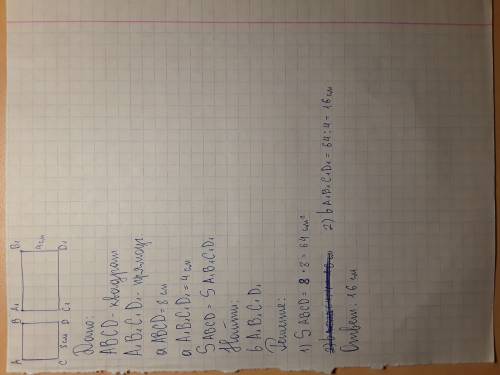 A B A₁ B₁
4 см
C 8 см D C₁ D₁
Дано:
ABCD - квадрат
A₁B₁C₁D₁ - прямоуг.
a ABCD = 8 см
a A₁B₁C₁D₁ = 4 см
S ABCD = S A₁B₁C₁D₁
Найти:
b A₁B₁C₁D₁
Решение:
1) S ABCD = 8 · 8 = 64 см²
2) b A₁B₁C₁D₁ = 64 : 4 = 16 см
Ответ: 16 см